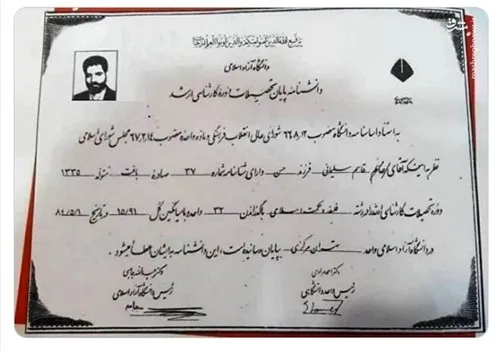 یرفع الله الذین آمنوا منکم والذین اوتوا العلم درجات
دانشگاه آزاد اسلامی
دانشنامه پایان تحصیلات دوره کارشناسی ارشد
به استناد اساسنامه دانشگاه مصوب ۶۶،۸،۱۲ شورای عالی انقلاب فرهنگی و ماده واحده مصوب ۶۷،۲،۱۴ مجلس شورای اسلامی
نظر به اینکه آقای قاسم سلیمانی فرزند حسن دارای شناسنامه شماره ۳۷ صادره بافت متولد ۱۳۳۵
دوره تحصیلات کارشناسی ارشد را در رشته فلسفه و حکمت اسلامی با گذراندن ۳۲ واحد و با میانگین کل ۱۵/۹۱ در تاریخ ۸۴/۵/۱
در دانشگاه آزاد اسلامی واحد تهران مرکزی به پایان رسانیده است، این دانشنامه به ایشان اعطا میشود
دکتر عبدالله جاسبی
رئیس واحد دانشگاهی رئیس دانشگاه آزاد اسلامی
مشرق
mashreghnews.ir